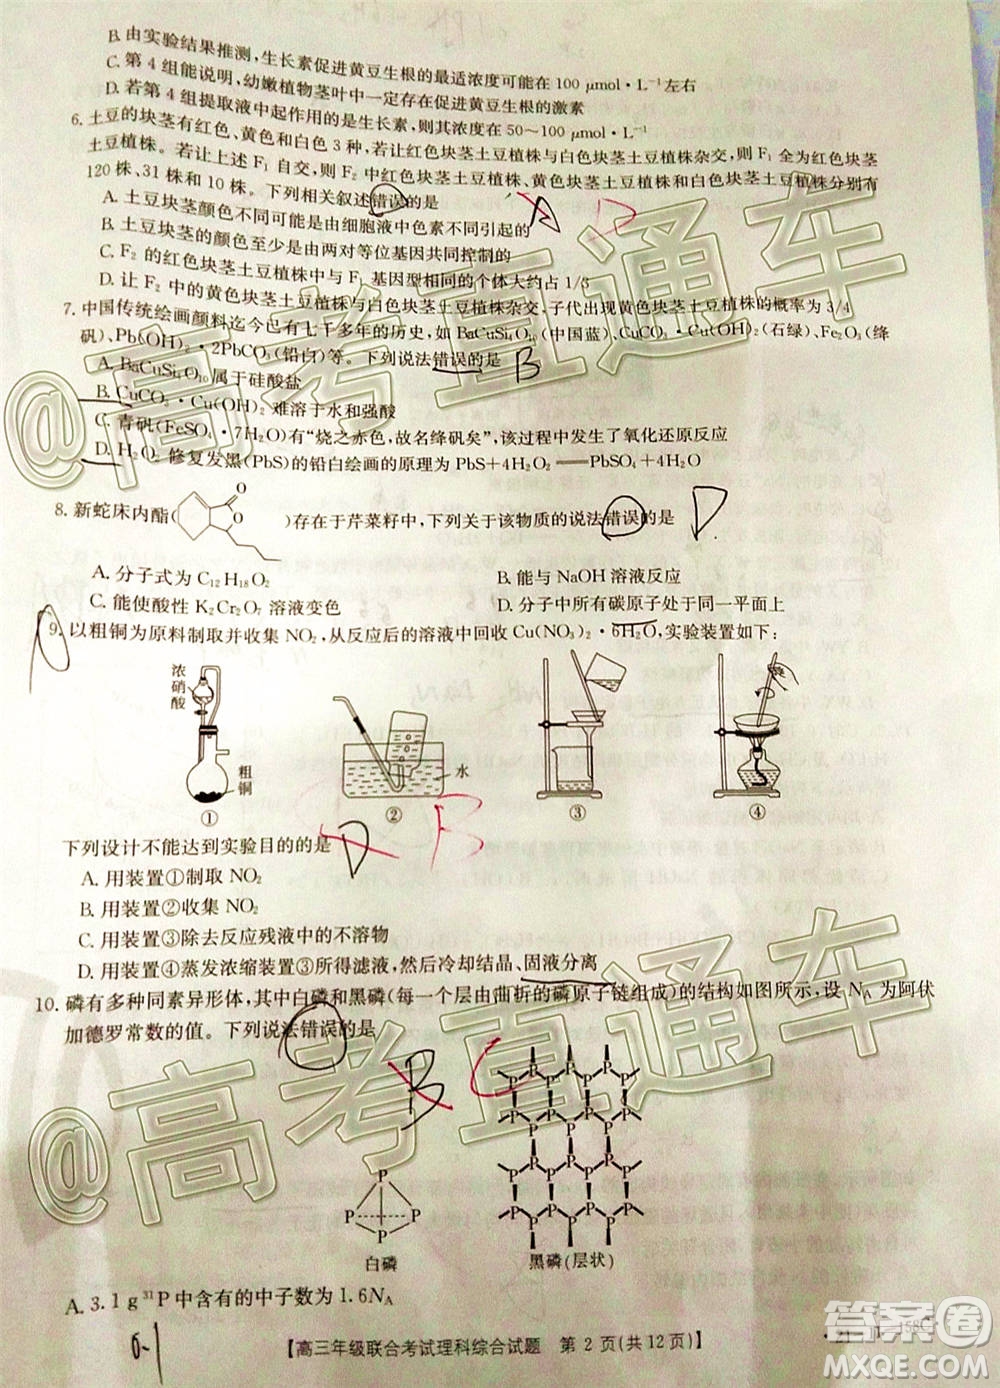 B. 由实验结果推测,生长素促进黄豆生根的最适浓度可能在 100 μmol·L⁻¹左右
C. 第 4 组能说明,幼嫩植物茎叶中一定存在促进黄豆生根的激素
D. 若第 4 组提取液中起作用的是生长素,则其浓度在 50～100 μmol·L⁻¹
6. 土豆的块茎有红色、黄色和白色 3 种,若让红色块茎土豆植株与白色块茎土豆植株杂交,则 F₁ 全为红色块茎
土豆植株。若让上述 F₁ 自交,则 F₂ 中红色块茎土豆植株、黄色块茎土豆植株和白色块茎土豆植株分别有
120 株、31 株和 10 株。下列相关叙述错误的是
A
A. 土豆块茎颜色不同可能是由细胞液中色素不同引起的
B. 土豆块茎的颜色至少是由两对等位基因共同控制的
C. F₂ 的红色块茎土豆植株中,与 F₁ 基因型相同的个体大约占 1/3
D. 让 F₂ 中的黄色块茎土豆植株与白色块茎土豆植株杂交,子代出现黄色块茎土豆植株的概率为 3/4
7. 中国传统绘画颜料迄今已有七千多年的历史,如 BaCuSi₄O₁₀(中国蓝)、CuCO₃·Cu(OH)₂(石绿)、Fe₂O₃(绛
矾)、Pb(OH)₂·2PbCO₃(铅白)等。下列说法错误的是 B
A. BaCuSi₄O₁₀ 属于硅酸盐
B. CuCO₃·Cu(OH)₂ 难溶于水和强酸
C. 青矾(FeSO₄·7H₂O)有“烧之赤色,故名绛矾矣”,该过程中发生了氧化还原反应
D. H₂O₂ 修复发黑(PbS)的铅白绘画的原理为 PbS+4H₂O₂══PbSO₄+4H₂O
O
O
8. 新蛇床内酯( )存在于芹菜籽中,下列关于该物质的说法错误的是 D
A. 分子式为 C₁₂H₁₈O₂ B. 能与 NaOH 溶液反应
C. 能使酸性 K₂Cr₂O₇ 溶液变色 D. 分子中所有碳原子处于同一平面上
9. 以粗铜为原料制取并收集 NO₂,从反应后的溶液中回收 Cu(NO₃)₂·6H₂O,实验装置如下:
浓硝酸
粗铜
水
① ② ③ ④
下列设计不能达到实验目的的是 D
B
A. 用装置①制取 NO₂
B. 用装置②收集 NO₂
C. 用装置③除去反应残液中的不溶物
D. 用装置④蒸发浓缩装置③所得滤液,然后冷却结晶、固液分离
10. 磷有多种同素异形体,其中白磷和黑磷(每一个层由曲折的磷原子链组成)的结构如图所示,设 Nₐ 为阿伏
加德罗常数的值。下列说法错误的是
B C
P
P P
P
白磷 黑磷(层状)
A. 3.1 g ³¹P 中含有的中子数为 1.6Nₐ
6-1
【高三年级联合考试理科综合试题 第 2 页(共 12 页)】
@高考直通车
@高考直通车
答案圈
MXQE.COM